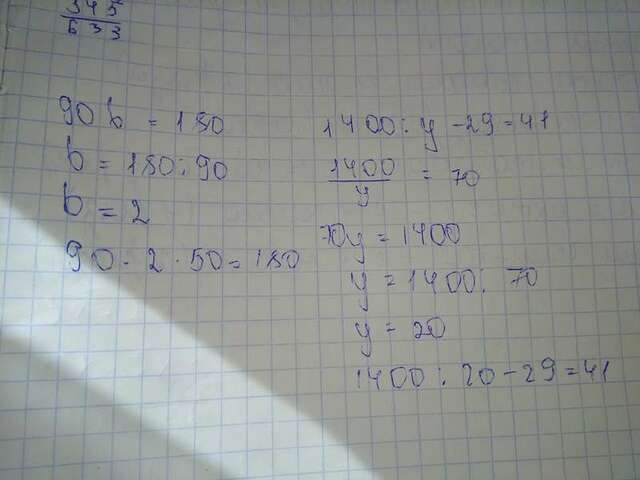 345
633
90b = 180
b = 180:90
b = 2
90 - 2 · 50 = 180
1400 : y - 29 = 41
1400
y
= 70
70y = 1400
y = 1400 : 70
y = 20
1400 : 20 - 29 = 41